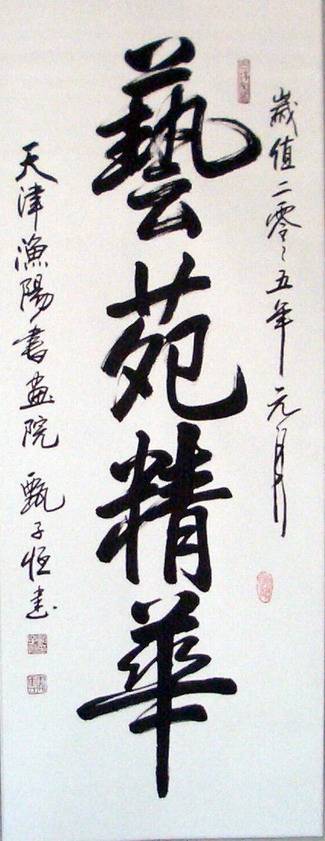 歲值二零零五年元月
藝苑精華
天津漁陽書畫院 甄子恒書